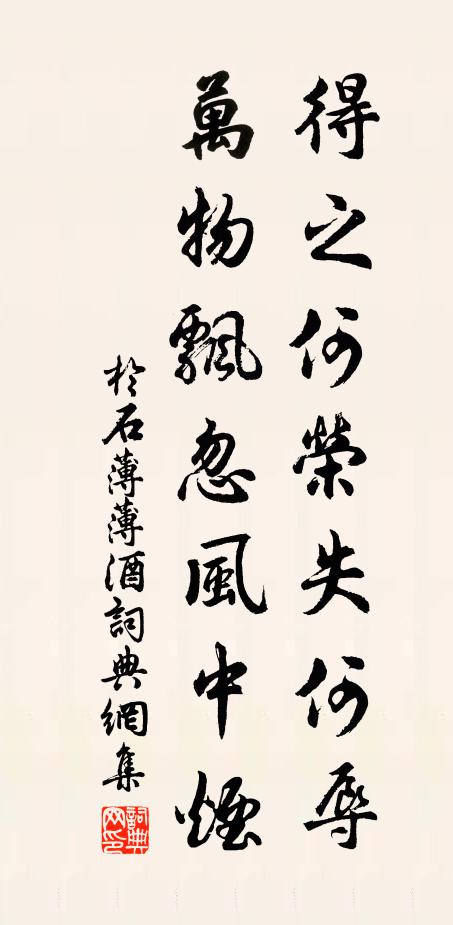 得之何榮失何辱
萬物飄忽風中煙
於石薄薄酒詞典網集
詞典网印